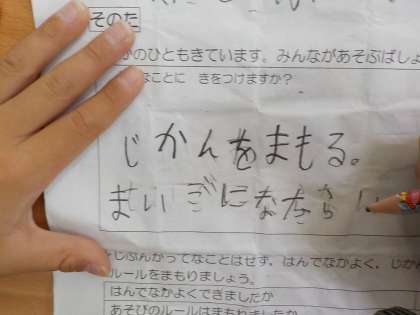 そのた
かのひともきています。みんながあそぶばしょ
なことに きをつけますか?
じかんをまもる。
まいごになたら
じぶんかってなことはせず、はんでなかよく、じか
ルールをまもりましょう。
はんでなかよくできましたか
あそびのルールはまもれましたか